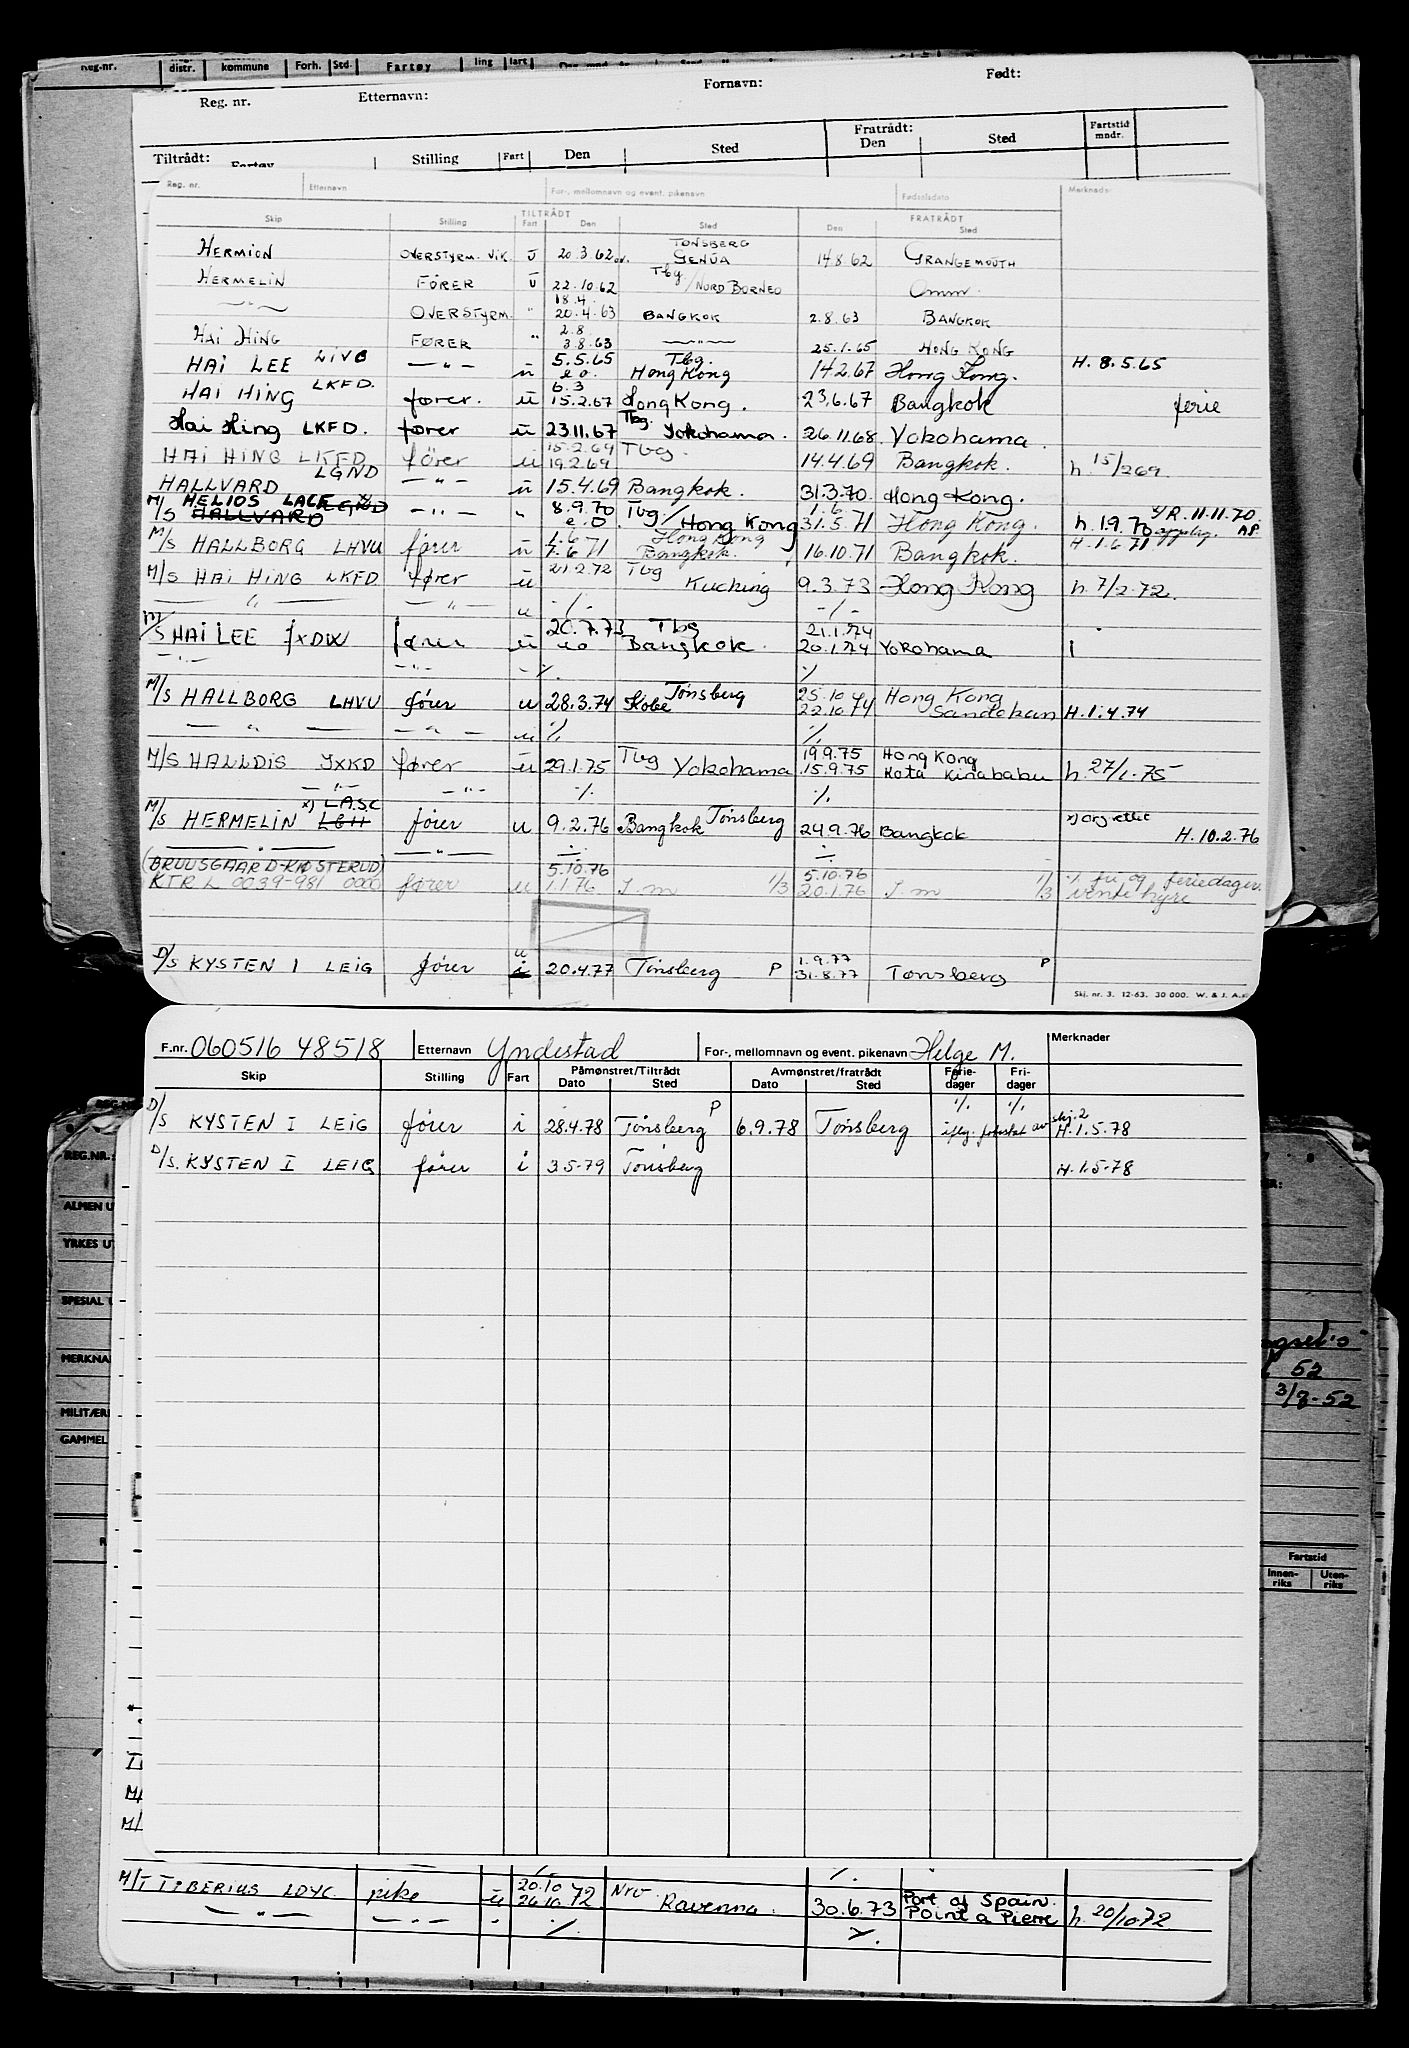 Reg.nr. distr. kommune Forh. Std. Fartøy ling fart
Reg. nr. Etternavn: Fornavn: Født:
Tiltrådt: Fartøy Stilling Fart Den Sted Fratrådt: Den Sted Fartstid mndr.
Reg. nr. Etternavn For-, mellomnavn og event. pikenavn Fødselsdato Merknader
TILTRÅDT FRATRÅDT
Skip Stilling Fart Den Sted Den Sted
HERMION OVERSTYRM. VIK. U 20.3.62 TØNSBERG GENUA 14.8.62 GRANGEMOUTH
HERMELIN FØRER U 22.10.62 Tbg / NORD BORNEO Omm.
—"— OVERSTYRM. " 18.4. 20.4.63 BANGKOK 2.8.63 BANGKOK
HAI HING FØRER " 2.8. 3.8.63 —"— 25.1.65 HONG KONG
HAI LEE LIVB —"— u 5.5.65 e.o. Tbg. Hong Kong 14.2.67 Hong Kong. H. 8.5.65
HAI HING LKFD. fører. u 6.3 15.2.67 Hong Kong. 23.6.67 Bangkok ferie
Hai Hing LKFD. fører u 23.11.67 Tbg. Yokohama. 26.11.68 Yokohama.
HAI HING LKFD fører u 15.2.69 19.2.69 Tbg. 14.4.69 Bangkok. h. 15/2 69.
HALLVARD LGND —"— u 15.4.69 Bangkok. 31.3.70. Hong Kong.
M/S HELIOS LALE HALLVARD LGND —"— " 8.9.70 e.o Tbg / Hong Kong 1.6. 31.5.71 Hong Kong. h. 1.9.70 YR. 11.11.70.
M/S HALLBORG LHVU fører u 1.6. 7.6.71 Hong Kong Bangkok. 16.10.71 Bangkok. H. 1.6.71
M/S HAI HING LKFD fører u 21.2.72 Tbg Kuching 9.3.73 Hong Kong h. 7/2.72.
—"— —"— u -/- -/-
M/S HAI LEE JXDW fører u 20.7.73 e.o Tbg Bangkok. 21.1.74 20.1.74 Yokohama i
—"— —"— ./. ./.
M/S HALLBORG LHVU fører u 28.3.74 Tønsberg Kobe 25.10 22.10.74 Hong Kong Sandakan H. 1.4.74
—"— —"— u ./. ./.
M/S HALLDIS JXKD fører u 29.1.75 Tbg Yokohama 19.9.75 15.9.75 Hong Kong Kota Kinababu h. 27/1.75
—"— —"— ./. ./.
M/S HERMELIN x) LASC LGH fører u 9.2.76 Bangkok Tønsberg 24.9.76 Bangkok x) orgrettet H. 10.2.76
—"— —"— ./. ./.
(BRUUSGAARD-KIØSTERUD) 5.10.76 5.10.76
KTR L 0039-981 0000 fører u 1.1.76 I.m 1/3 20.1.76 I.m 1/3 ./. fri og feriedager. vente hyre
D/S KYSTEN I LEIG fører u i 20.4.77 Tønsberg P 1.9.77 31.8.77 Tønsberg P
Skj. nr. 3. 12-63. 30 000. W. & J. A.
F.nr. 060516 48518 Etternavn Yndestad For-, mellomnavn og event. pikenavn Helge M. Merknader
Skip Stilling Fart Påmønstret/Tiltrådt Dato Sted Avmønstret/fratrådt Dato Sted Ferie-dager Fri-dager
D/S KYSTEN I LEIG fører i 28.4.78 Tønsberg P 6.9.78 Tønsberg ./. ./. iflg. skj.2 H. 1.5.78
D/S. KYSTEN I LEIG fører i 3.5-79 Tønsberg H. 1.5-78
REG.NR.:
ALMEN U
YRKES UT
SPESIAL
MERKNA
52
MILITÆR
3/8-52
GAMMEL
Fartstid
Innen-riks Uten-riks
M/T TIBERIUS LDYC. u 20.10 26.10 72 Ravenna. 30.6.73 Port of Spain. Point a Pierre h. 20/10 72
—"— —"— - ./. ./.